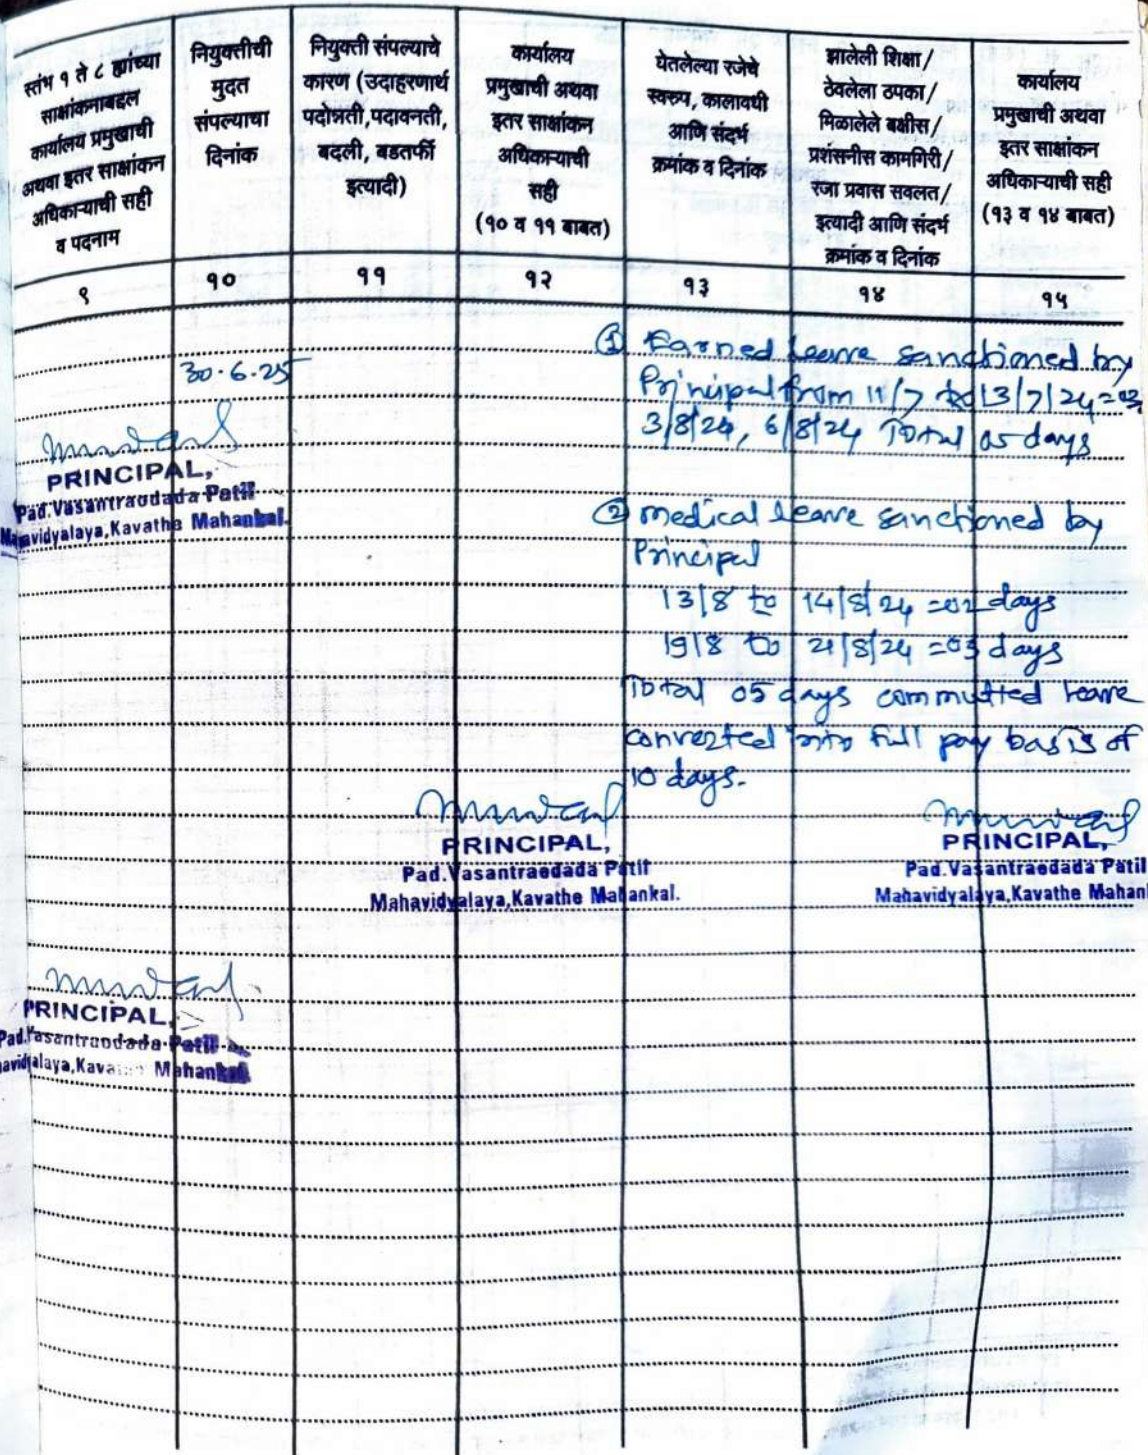 स्तंभ १ ते ८ ह्यांच्या
साक्षांकनाबद्दल
कार्यालय प्रमुखाची
अथवा इतर साक्षांकन
अधिकाऱ्याची सही
व पदनाम
नियुक्तीची
मुदत
संपल्याचा
दिनांक
नियुक्ती संपल्याचे
कारण (उदाहरणार्थ
पदोन्नती,पदावनती,
बदली, बडतर्फी
इत्यादी)
कार्यालय
प्रमुखाची अथवा
इतर साक्षांकन
अधिकाऱ्याची
सही
(१० व ११ बाबत)
घेतलेल्या रजेचे
स्वरुप, कालावधी
आणि संदर्भ
क्रमांक व दिनांक
झालेली शिक्षा/
ठेवलेला ठपका/
मिळालेले बक्षीस/
प्रशंसनीस कामगिरी/
रजा प्रवास सवलत/
इत्यादी आणि संदर्भ
क्रमांक व दिनांक
कार्यालय
प्रमुखाची अथवा
इतर साक्षांकन
अधिकाऱ्याची सही
(१३ व १४ बाबत)
९ १० ११ १२ १३ १४ १५
30.6.25
① Earned Leave sanctioned by
Principal from 11/7 to 13/7/24=03
3/8/24, 6/8/24 Total 05 days
PRINCIPAL,
Pad.Vasantraodada Patil
Mahavidyalaya,Kavathe Mahankal.
② medical leave sanctioned by
Principal
13/8 to 14/8/24 =02 days
19/8 to 21/8/24 =03 days
Total 05 days committed leave
converted into full pay basis of
10 days.
PRINCIPAL,
Pad.Vasantraodada Patil
Mahavidyalaya,Kavathe Mahankal.
PRINCIPAL,
Pad.Vasantraodada Patil
Mahavidyalaya,Kavathe Mahank
PRINCIPAL,
Pad.Vasantraodada Patil
avidyalaya,Kava Mahankal